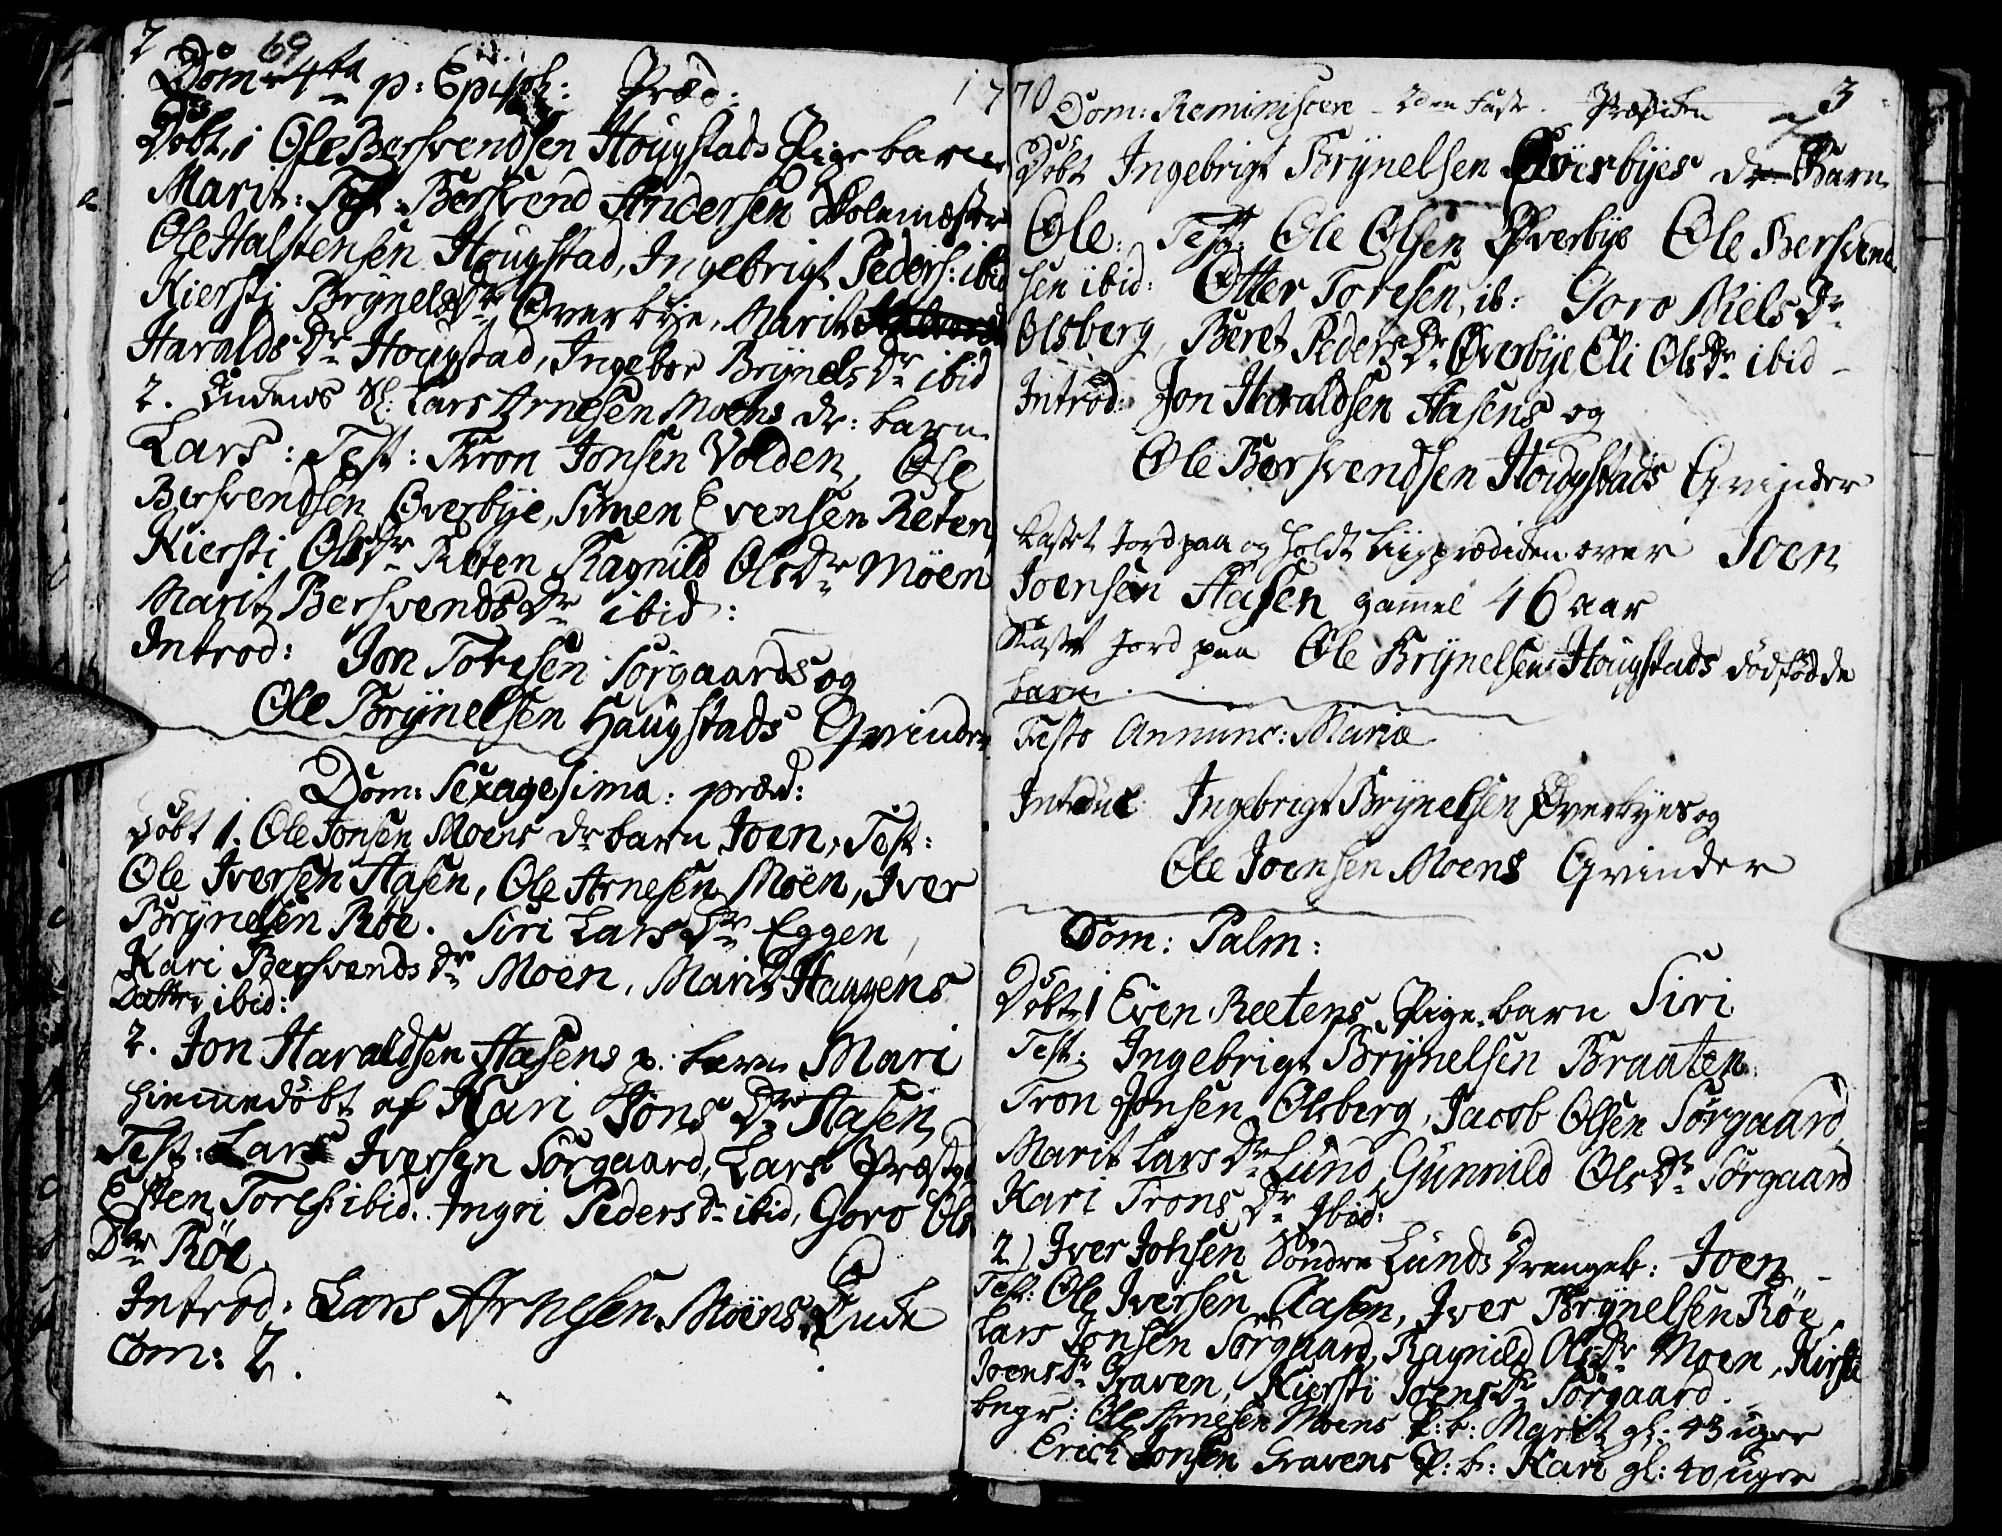 2 69
Dom 4ta p: Epiph: Præd:
Døbt, 1 Ole Bersvendsen Hougstads Pige barn
Marit: Test: Bersvend Andersen Skolemæster
Ole Halstensen Hougstad, Ingebrigt Peders: ibid
Kiersti Brÿnels Dr Øverbÿe, Marit
Haralds Dr Hougstad, Ingebor Brÿnels Dr ibid
2. Lars Arnesen Moens dr: barn
Lars: Test: Tron Jonsen Volden, Ole
Bersvendsen Øverbÿe, Simen Evensen Reten,
Kiersti Ols Dr Reten Ragnild Ols Dr Möen
Marit Bersvends Dr ibid:
Introd: Jon Toresen Sörgaards og
Ole Brÿnelsen Haugstads Qvinder
Dom: Sexagesima: præd:
Døbt 1. Ole Jonsen Moens dr barn Joen, Test:
Ole Iversen Aasen, Ole Arnesen Möen, Iver
Brÿnelsen Röe. Siri Lars Dr Eggen
Kari Bersvends Dr Moen, Marit Haagens
Datter ibid:
2. Jon Haraldsen Aasens p. barn Mari
hiemmedøbt af Kari Jons Dr Aasen
Test: Lars Iversen Sörgaard, Lars Præstgd
Esten Tores: ibid. Ingri Peders d ibid, Goro Ols
Dr Röe.
Introd: Lars Arnesen Moens Enke
Com: 2.
1770 3
Dom: Reminiscere - 2den Faste. Prædiken
Døbt Ingebrigt Brÿnelsen Øverbÿes dr Barn
Ole: Test: Ole Olsen Øverbÿe Ole Bersvend
sen ibid: Otter Toresen, ib: Goro Niels Dr
Olsberg, Beret Peders Dr Øverbÿe, Eli Ols Dr ibid -
Introd: Jon Haraldsen Aasens og
Ole Bersvendsen Hougstads Qvinder
Kastet Jord paa og holdt Liigprædiken over Joen
Joensen Aasen gamel 46 aar
Kastet Jord paa Ole Brÿnelsens Hougstads dødfødde
barn.
Festo Annunc: Mariæ
Introduc: Ingebrigt Brÿnelsen Øverbyes og
Ole Joensen Moens Qvinder
Dom: Palm:
Døbt 1 Even Reetens Pige barn Siri
Test: Ingebrigt Brÿnelsen Braaten
Tron Jonsen Olsberg, Jacob Olsen Sörgaard,
Marit Lars Dr Lund, Gunnild Ols Dr Sörgaard
Kari Trons Dr Ibid:
2) Iver Johsen Söndre Lunds Drengeb: Joen -
Test: Ole Iversen Aasen, Iver Brÿnelsen Röe,
Lars Jonsen Sörgaard, Ragnild Ols Dr Moen, Kirsti
Joens Dr Graven, Kiersti Joens Dr Sörgaard.
begr: Ole Arnesen Moens P: b: Marit gl: 43 uger
Erich Jonsen Gravens P: b: Kari gl: 40 uger